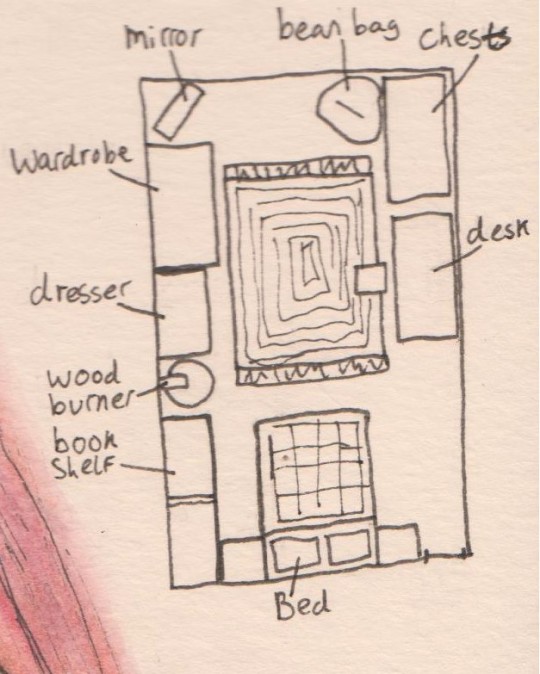 mirror
bean bag
chests
Wardrobe
desk
dresser
wood
burner
book
shelf
Bed